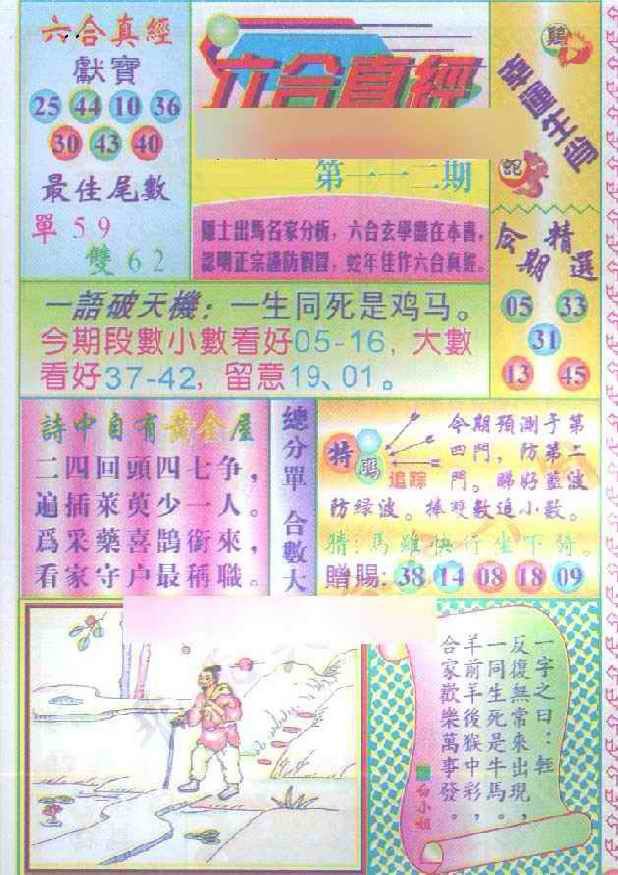 六合真經
獻寶
25 44 10 36
30 43 40
最佳尾數
單 5 9
雙 6 2
六合真經
第一一二期
隱士出馬名家分析，六合玄學盡在本書，
認明正宗謹防假冒，蛇年佳作六合真經。
鷄
幸運生肖
蛇
今期精選
05 33
31
13 45
一語破天機：一生同死是鸡马。
今期段數小數看好05-16，大數
看好37-42，留意19、01。
詩中自有黃金屋
二四回頭四七争，
遍插萊萸少一人。
爲采藥喜鵲銜來，
看家守户最稱職。
總分單 合數大
特碼
追踪
今期預測于第
四門，防第二
門。睇好藍波
防绿波。捧雙數追小數。
猜：馬雖快行坐下騎。
贈賜：38 14 08 18 09
一字之曰：輕
反復無常來出現，
一同生死是牛馬。
羊前羊後猴中彩，
合家歡樂萬事發。
白小姐